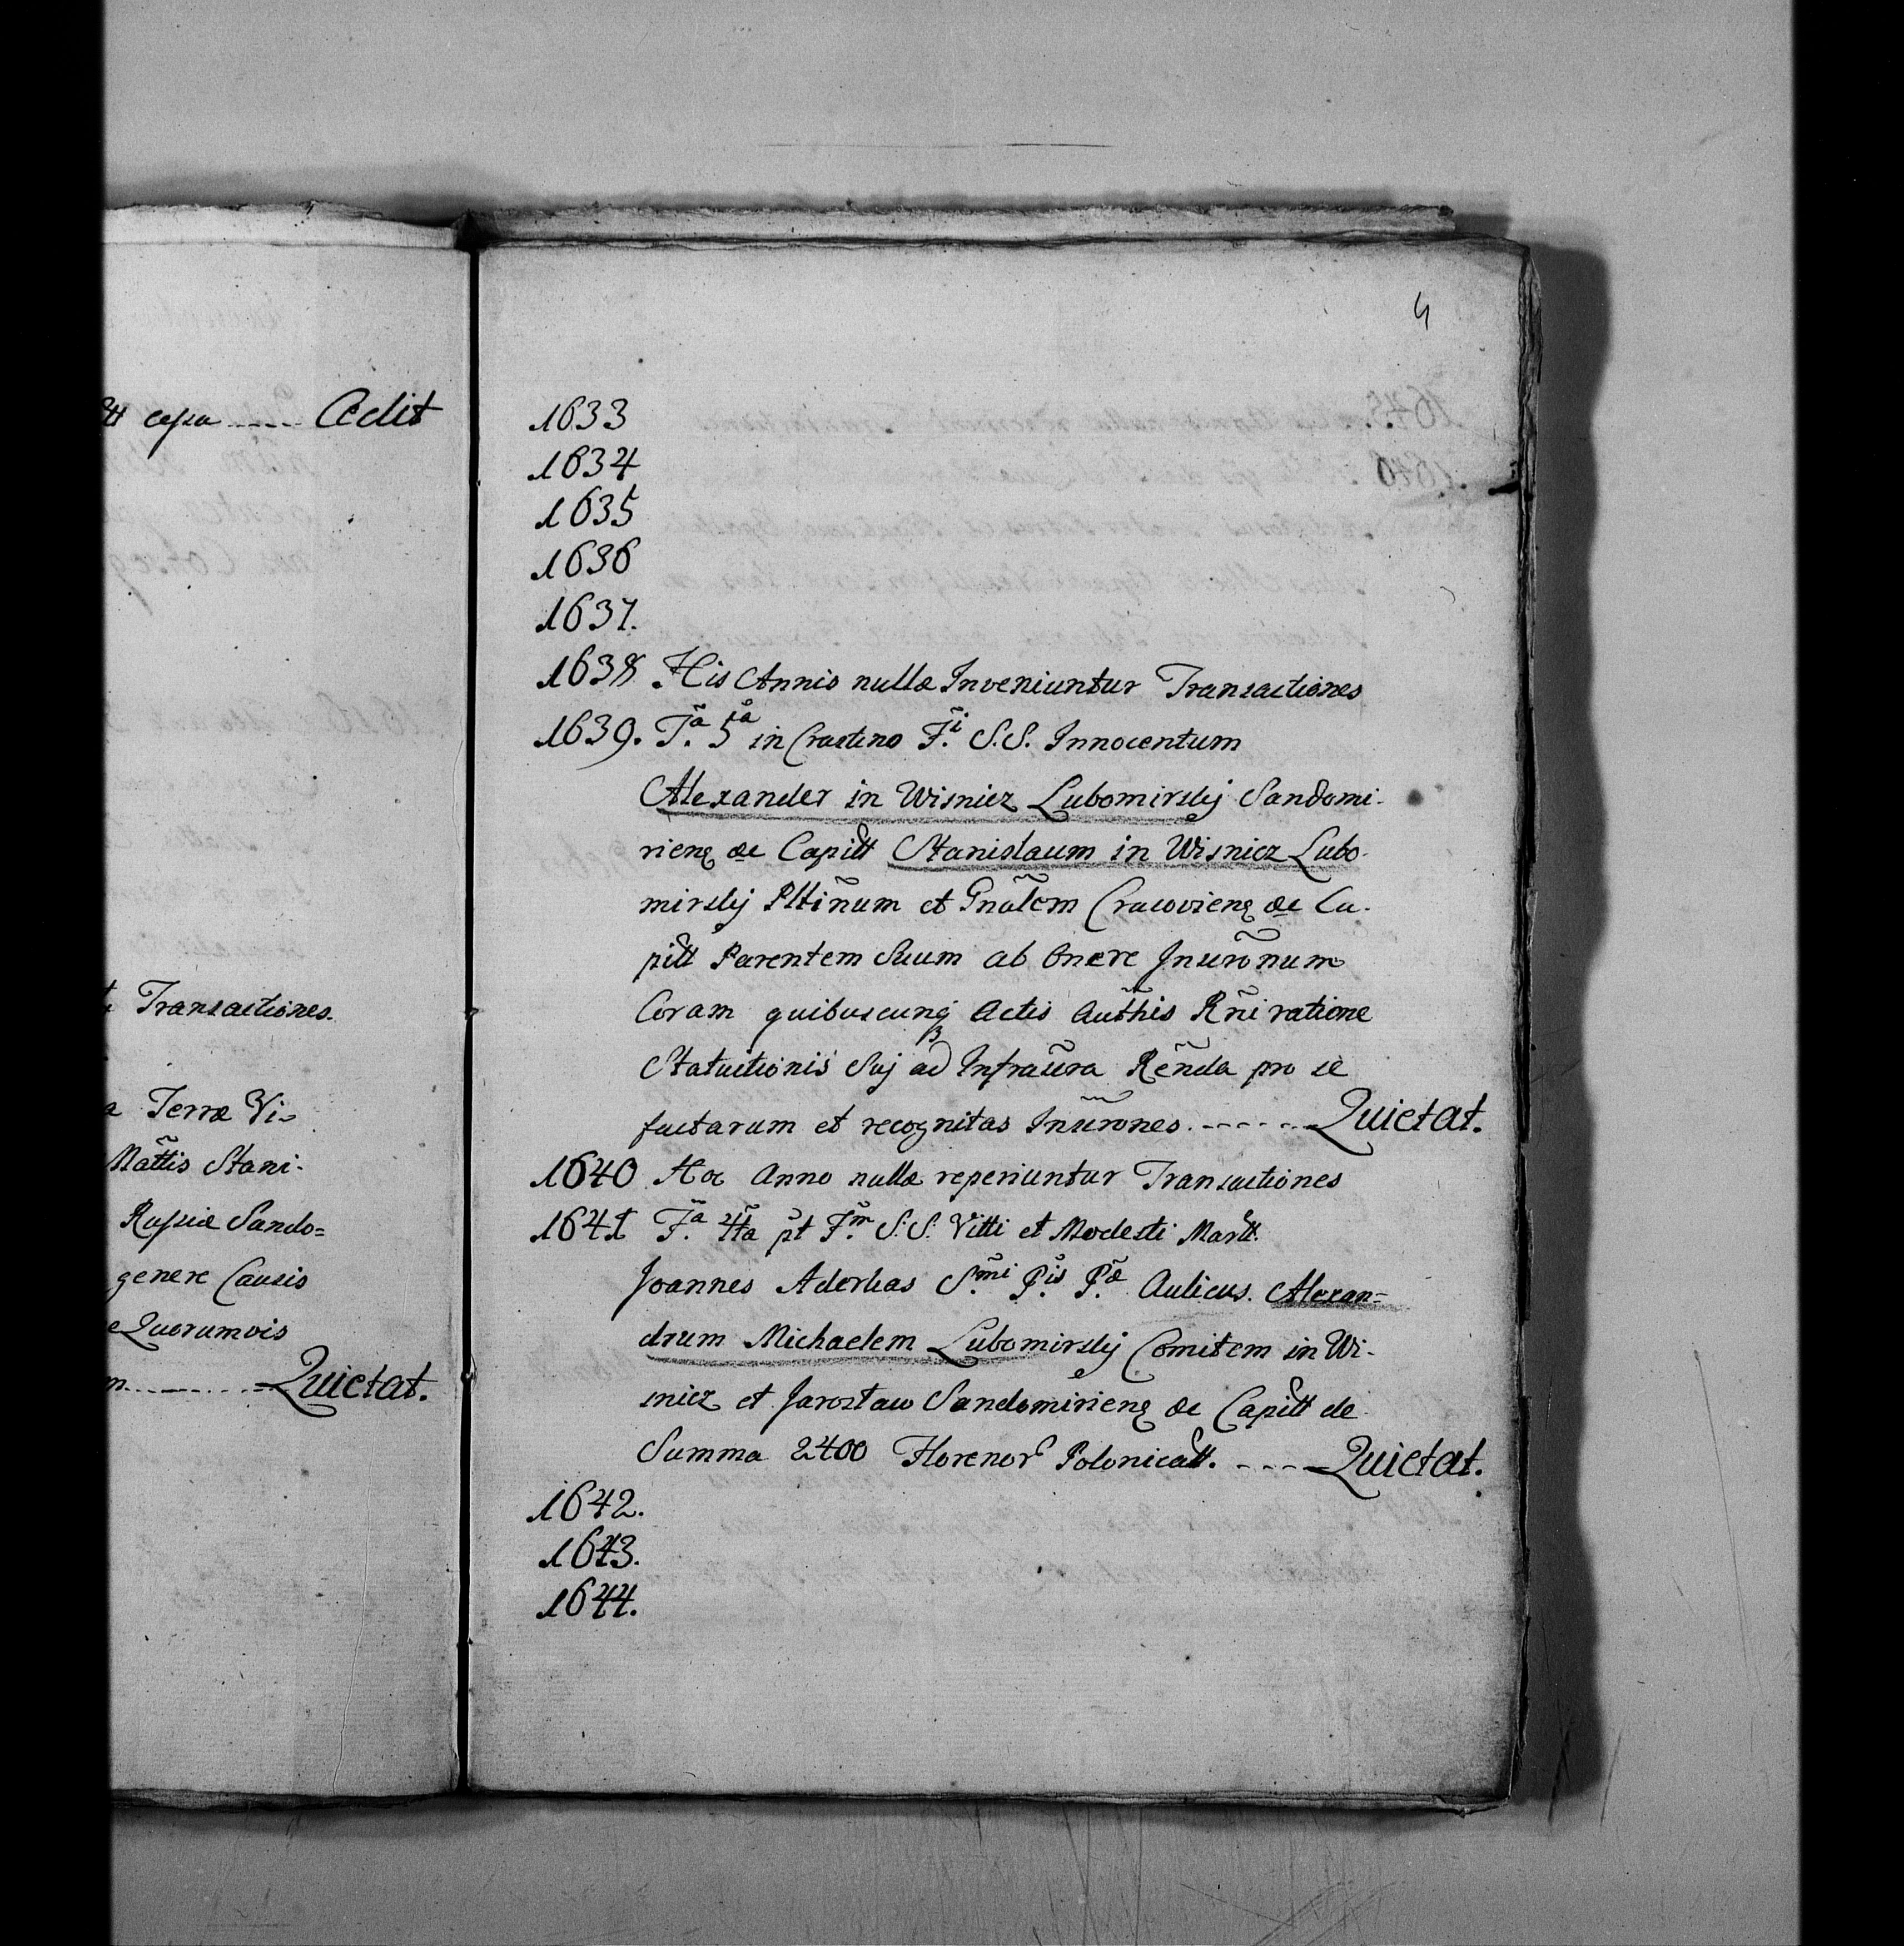 tt cessa ----- Cedit
Transactiones.
a Terræ Vi-
Mattis Stani-
Russiæ Sando=
genere Causis
Quorumvis
Quietat.
4
1633
1634
1635
1636
1637.
1638 His Annis nullæ Inveniuntur Transactiones
1639. F.ã 5ta in Crastino F.i S.S. Innocentum
Alexander in Wisnicz Lubomirskj Sandomi-
rienȩ &c Capitt Stanislaum in Wisnicz Lubo-
mirskj Plttinum et Gnalem Cracovienȩ &c Ca-
pitt Parentem Suum ab Onere Inscr̃onum
Coram quibuscunqȝ Actis Autthis Rñi ratione
Statuitionis Suj ad Infrascra Rẽnda pro se
factarum et recognitas Inscr̃ones. ------ Quietat.
1640 Hoc Anno nullæ reperiuntur Transactiones
1641 F.ã 4ta pt F.m S.S. Vitti et Modesti Martt.
Joannes Aderkas S.mi P.is P.æ Aulicus. Alexan=
drum Michaelem Lubomirskj Comitem in Wi-
snicz et Jarosław Sandomirienȩ &c Capitt de
Summa 2400 Florenor Polonicatt. ---- Quietat.
1642.
1643.
1644.